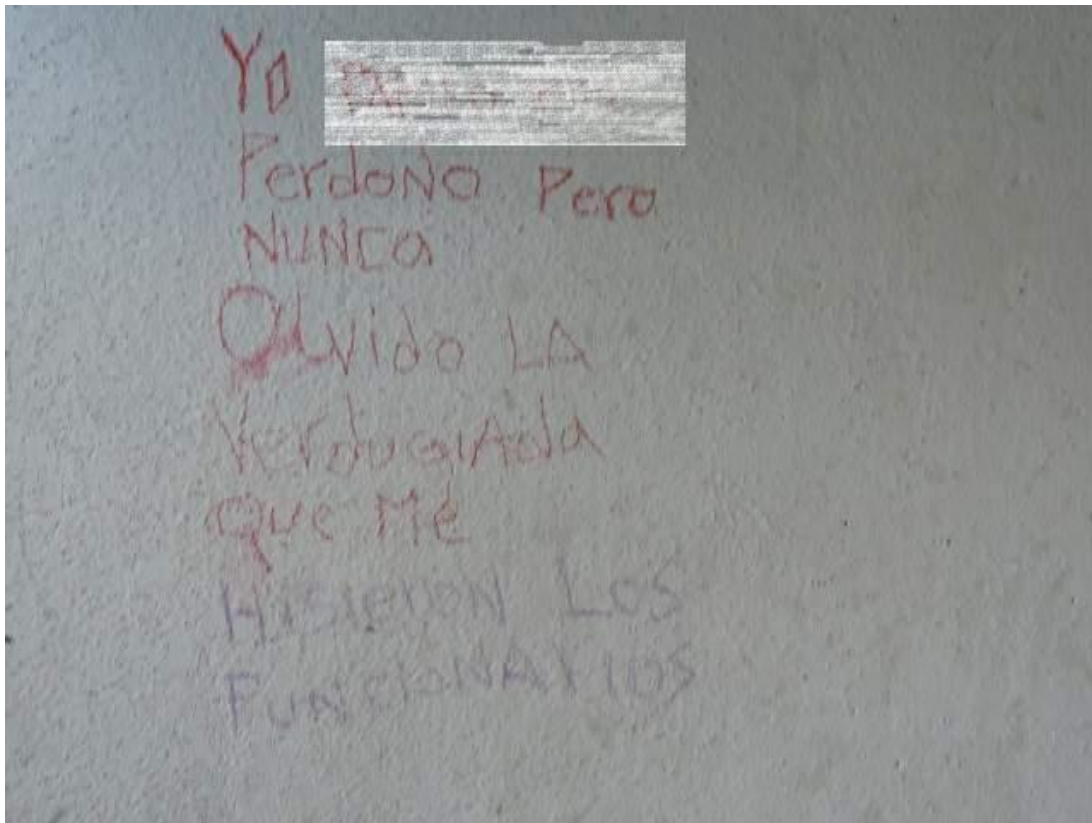 Yo
Perdono Pero
NUNCa
OLvido LA
VerduguiAda
Que Me
Hisieron Los
FuncioNArios